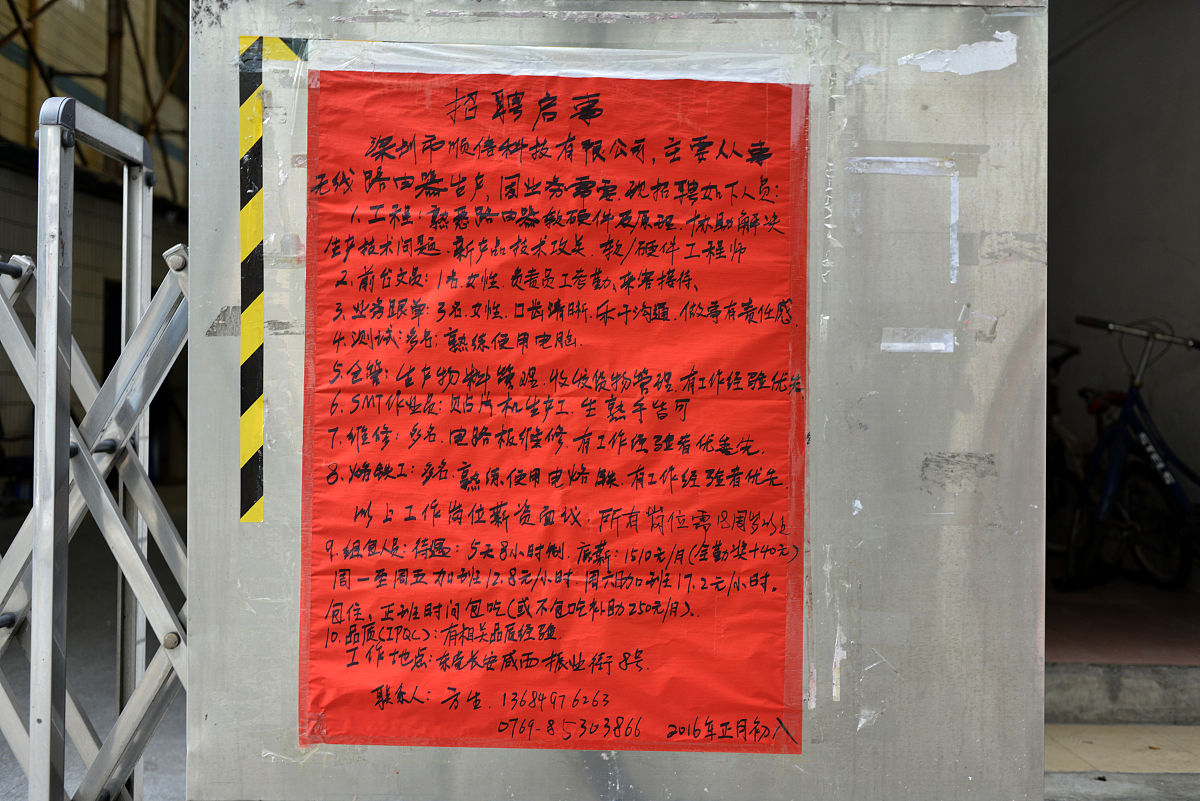 招聘启事
深圳市顺倍科技有限公司，主要从事
无线路由器生产，因业务需要，现招聘如下人员：
1.工程：熟悉路由器软硬件及原理，协助解决
生产技术问题，新产品技术攻关，软/硬件工程师
2.前台文员：1名，女性，负责员工考勤、来客接待、
3.业务跟单：3名，女性，口齿清晰，乐于沟通，做事有责任感
4.测试：多名：熟练使用电脑
5.仓管：生产物料管理，收发货物管理，有工作经验优先
6.SMT作业员：贴片机生产工，生熟手皆可
7.维修：多名，电路板维修，有工作经验者优先
8.烙铁工：多名，熟练使用电烙铁，有工作经验者优先
以上工作岗位薪资面议，所有岗位需18周岁以上
9.组包人员：待遇：5天8小时制，底薪：1510元/月(全勤奖+40元)
周一至周五加班12.8元/小时，周六日加班17.2元/小时。
包住，正班时间包吃(或不包吃补助250元/月)、
10.品质(IPQC)：有相关品质经验
工作地点：东莞长安咸西振业街8号
联系人：方生 13684976263
0769-85303866 2016年正月初八